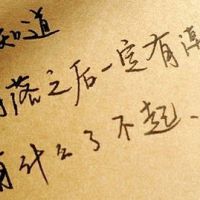 知道
落之后一定有
有什么了不起、